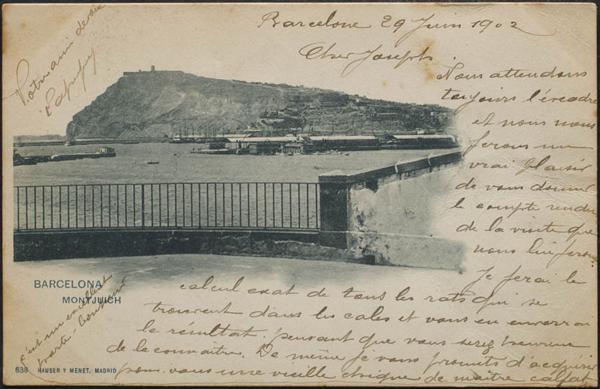 Barcelone 29 Juin 1902
Cher Joseph
Nous attendons
toujours l'escadre
et nous nous
ferons un
vrai plaisir
de vous donner
le compte rendu
de la visite que
nous lui ferons
Je ferai le
calcul exat de tous les rats qui se
trouvent dans les cales et vous en enverrai
le résultat, pensant que vous serez heureux
de le connaître. De même je vous promets d'acquérir
pour vous une vieille chique de maître calfat
BARCELONA
MONTJUICH
c'est un excellent
636 HAUSER Y MENET, MADRID